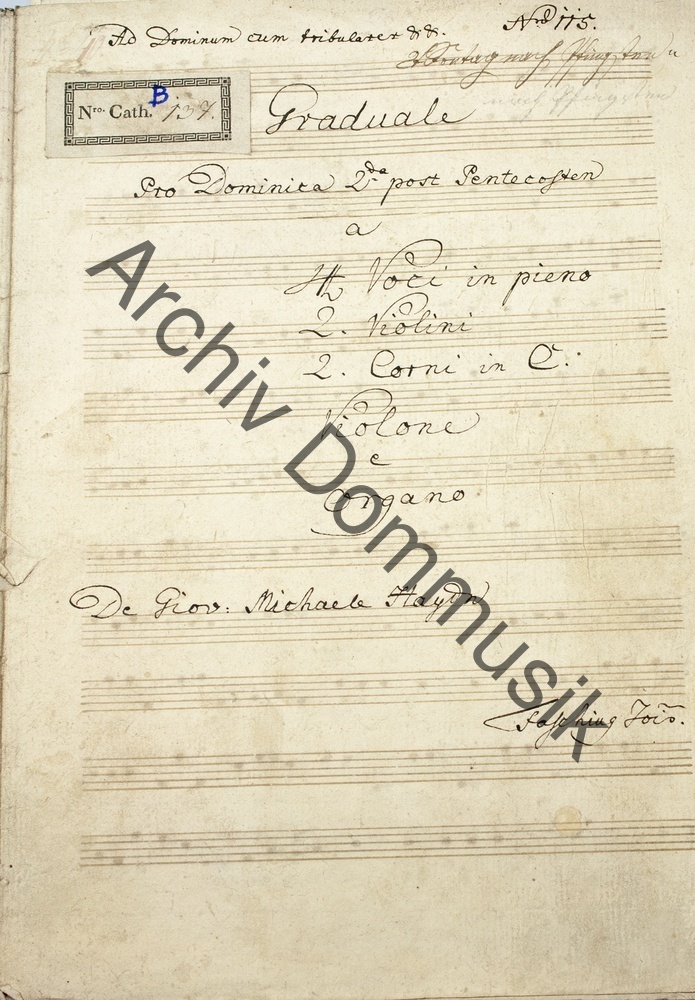 Ad Dominum cum tribularer &&. Nro 115.
2 Sontag nach Pfingsten
nach Pfingsten
Nro. Cath. B 137.
Graduale
Pro Dominica 2da post Pentecosten
a
4 Voci in pieno
2. Violini
2. Corni in C.
Violone
e
Organo
De Giov: Michaele Haydn
Fasching
Archiv Dommusik